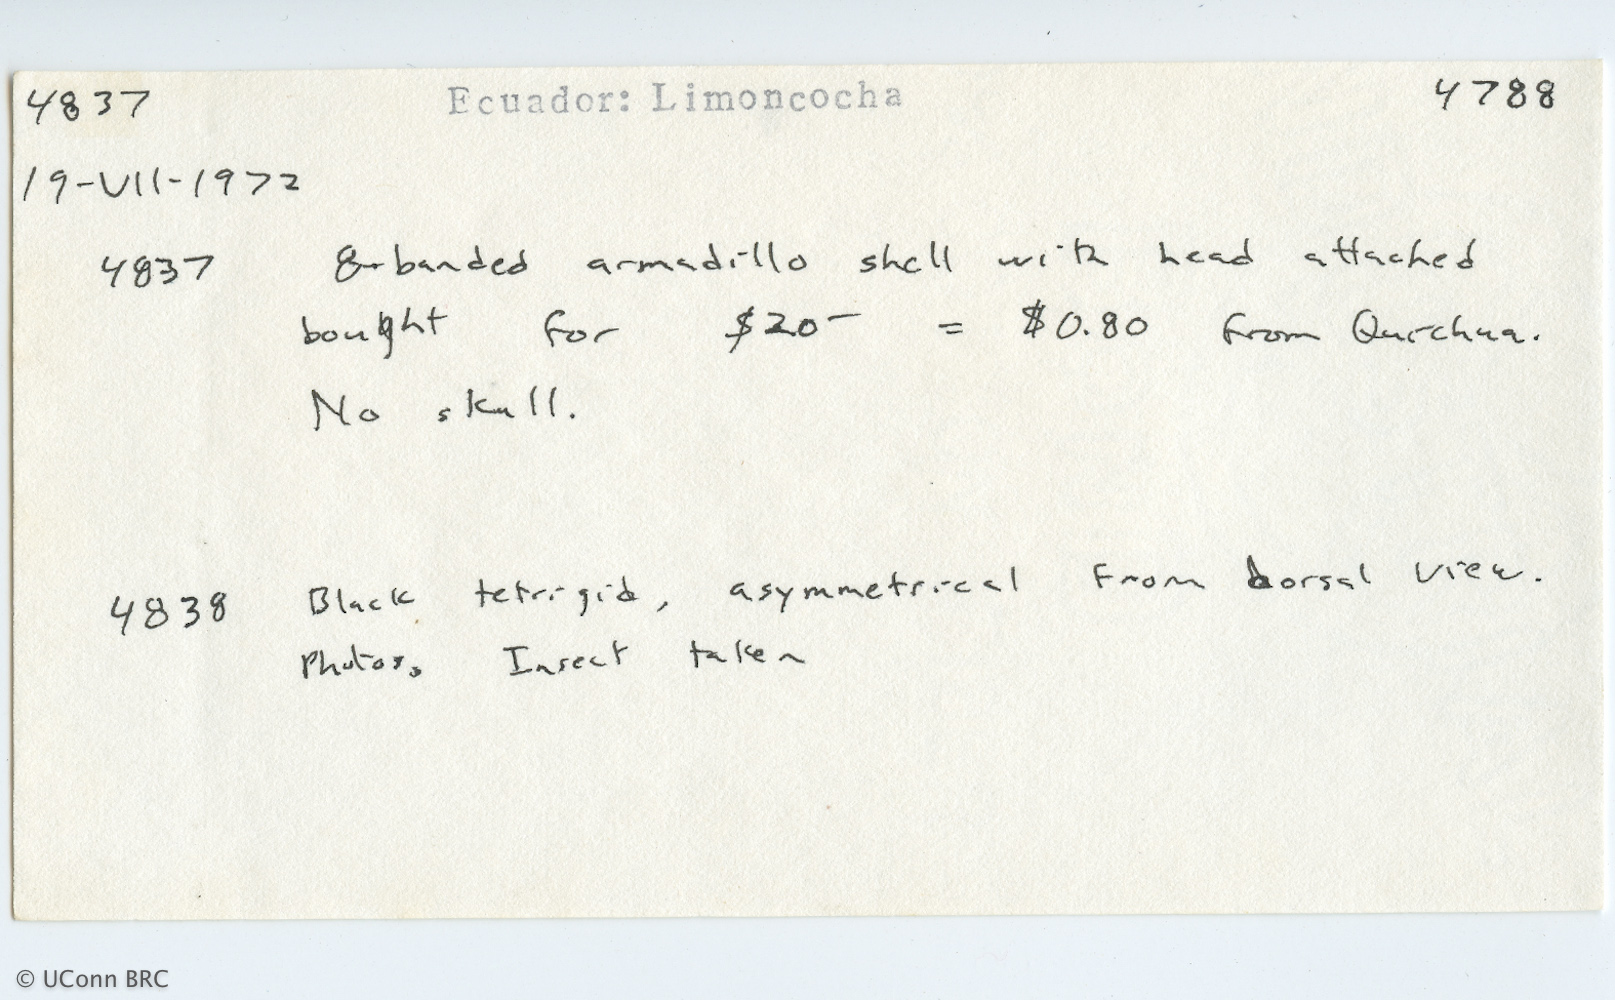 4837 Ecuador: Limoncocha 4788
19-VII-1972
4837 8-banded armadillo shell with head attached
bought for $20- = $0.80 from Quichua.
No skull.
4838 Black tetrigid, asymmetrical from dorsal view.
Photos. Insect taken
© UConn BRC